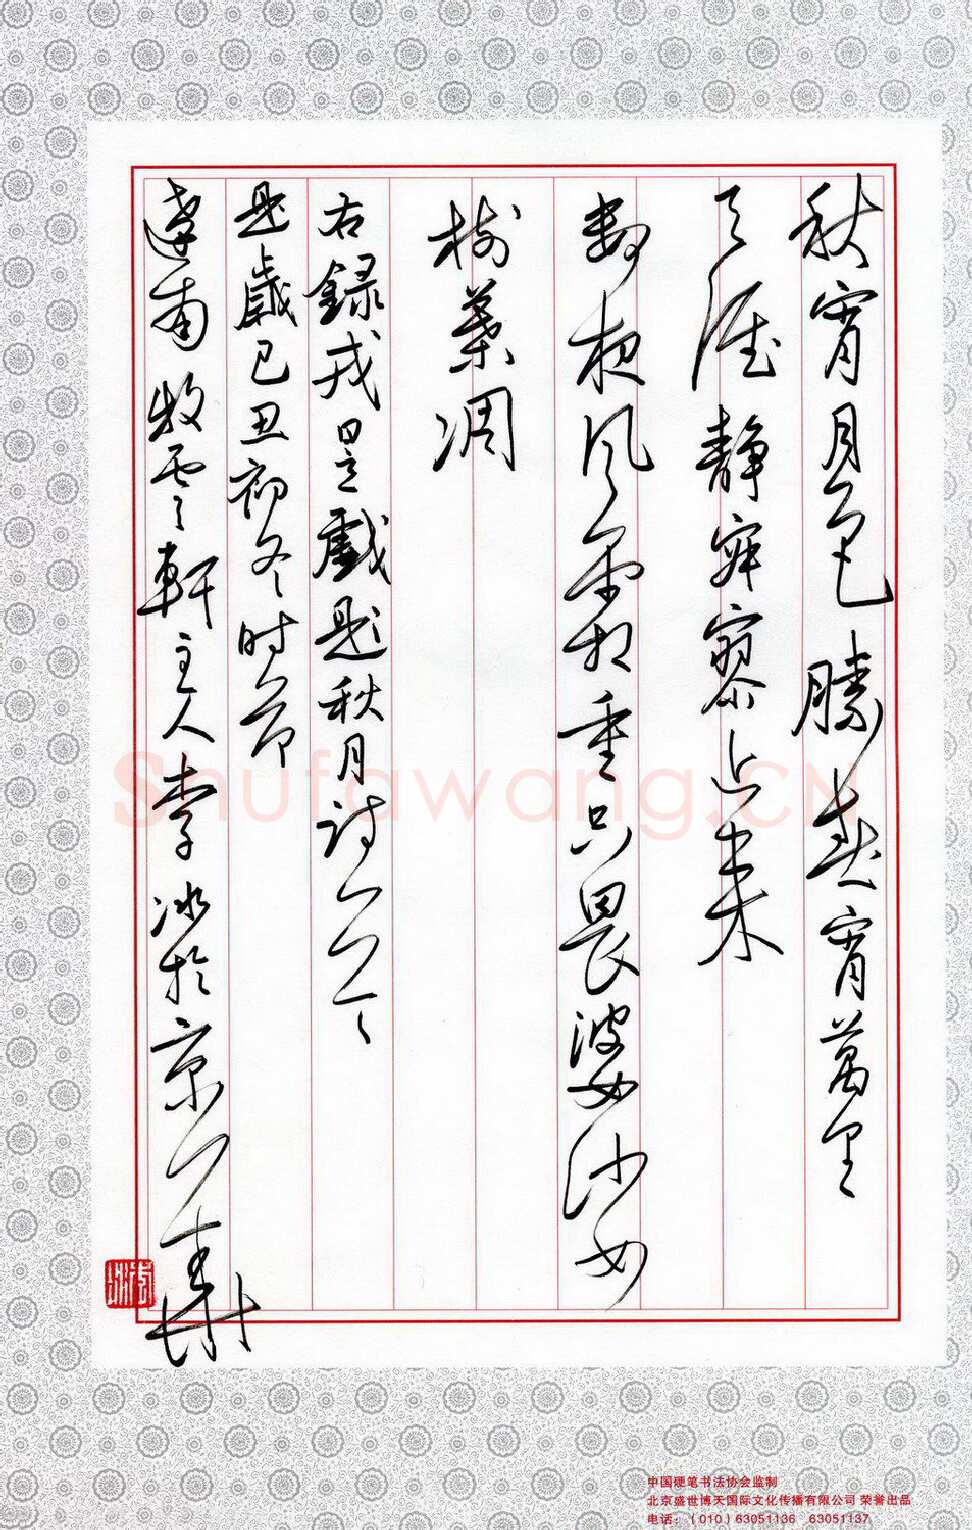 秋宵月色勝春宵萬里
天涯静寂寥近来
数夜风霜重只畏婆娑
樹葉凋
右録戎昱戲题秋月诗一首
是歲己丑初冬时节
達甫牧雲軒主人李冰於京華
Shufawang.CN
中国硬笔书法协会监制
北京盛世博天国际文化传播有限公司 荣誉出品
电话：（010）63051136 63051137